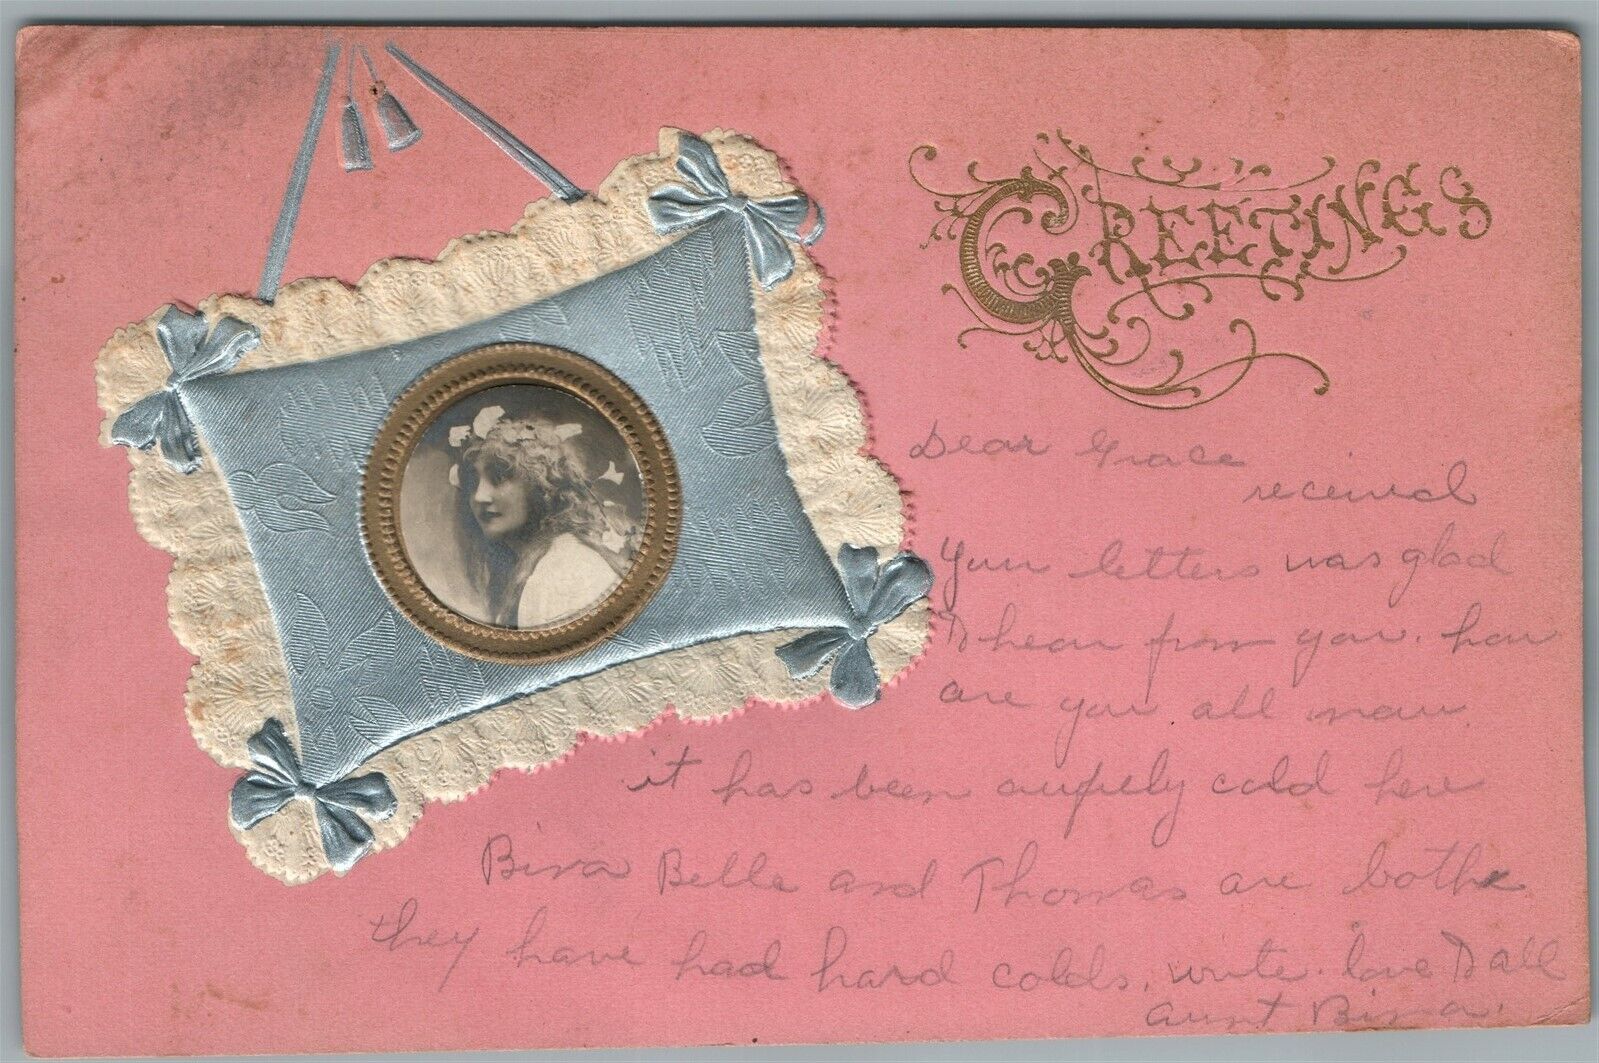 GREETINGS
Dear Grace
received
Your letters was glad
to hear from you. how
are you all now.
it has been awfely cold here
Bina Bella and Thomas are both
they have had hard colds. write. love to all
Aunt Bina.